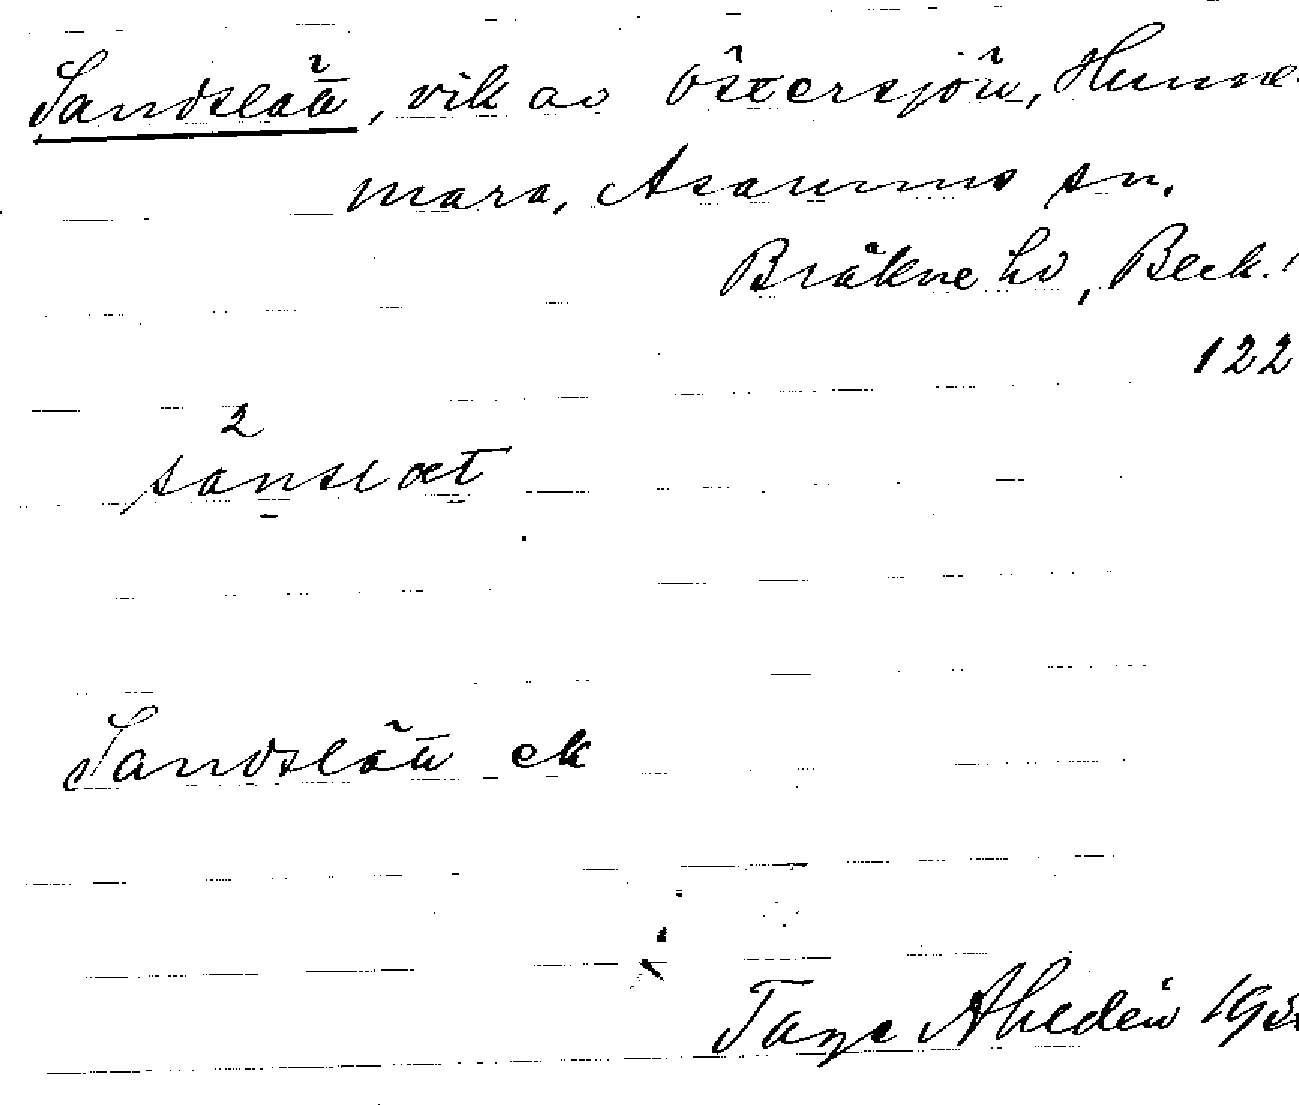 Sandslätt, vik av Östersjön, Hunne-
mara, Asarums sn.
Bräkne hd, Blek.
122
2
sanslæt
Sandslätt ek
Tage Ahldén 19